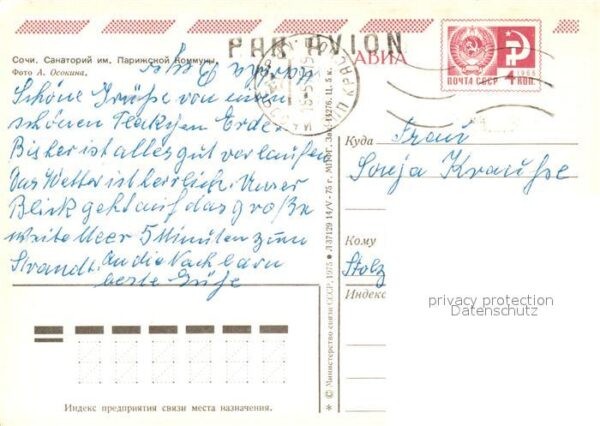 PAR AVION
АВИА
Сочи. Санаторий им. Парижской Коммуны.
Фото А. Осокина.
ПОЧТА СССР 4 КОП.
1966
Schöne Grüße von einem
schönen Fleckchen Erde.
Bisher ist alles gut verlaufen
Das Wetter ist herrlich. Unser
Blick geht auf das große
weite Meer 5 Minuten zum
Strandt. An die Nachbarn
beste Grüße
Куда Frau
Sonja Krauße
Кому
Stolz
Индекс
privacy protection
Datenschutz
Индекс предприятия связи места назначения.
* © Министерство связи СССР, 1975 ● Л 37129 14/V - 75 г. МПФГ. Зак. 14276. Ц. 5 к.